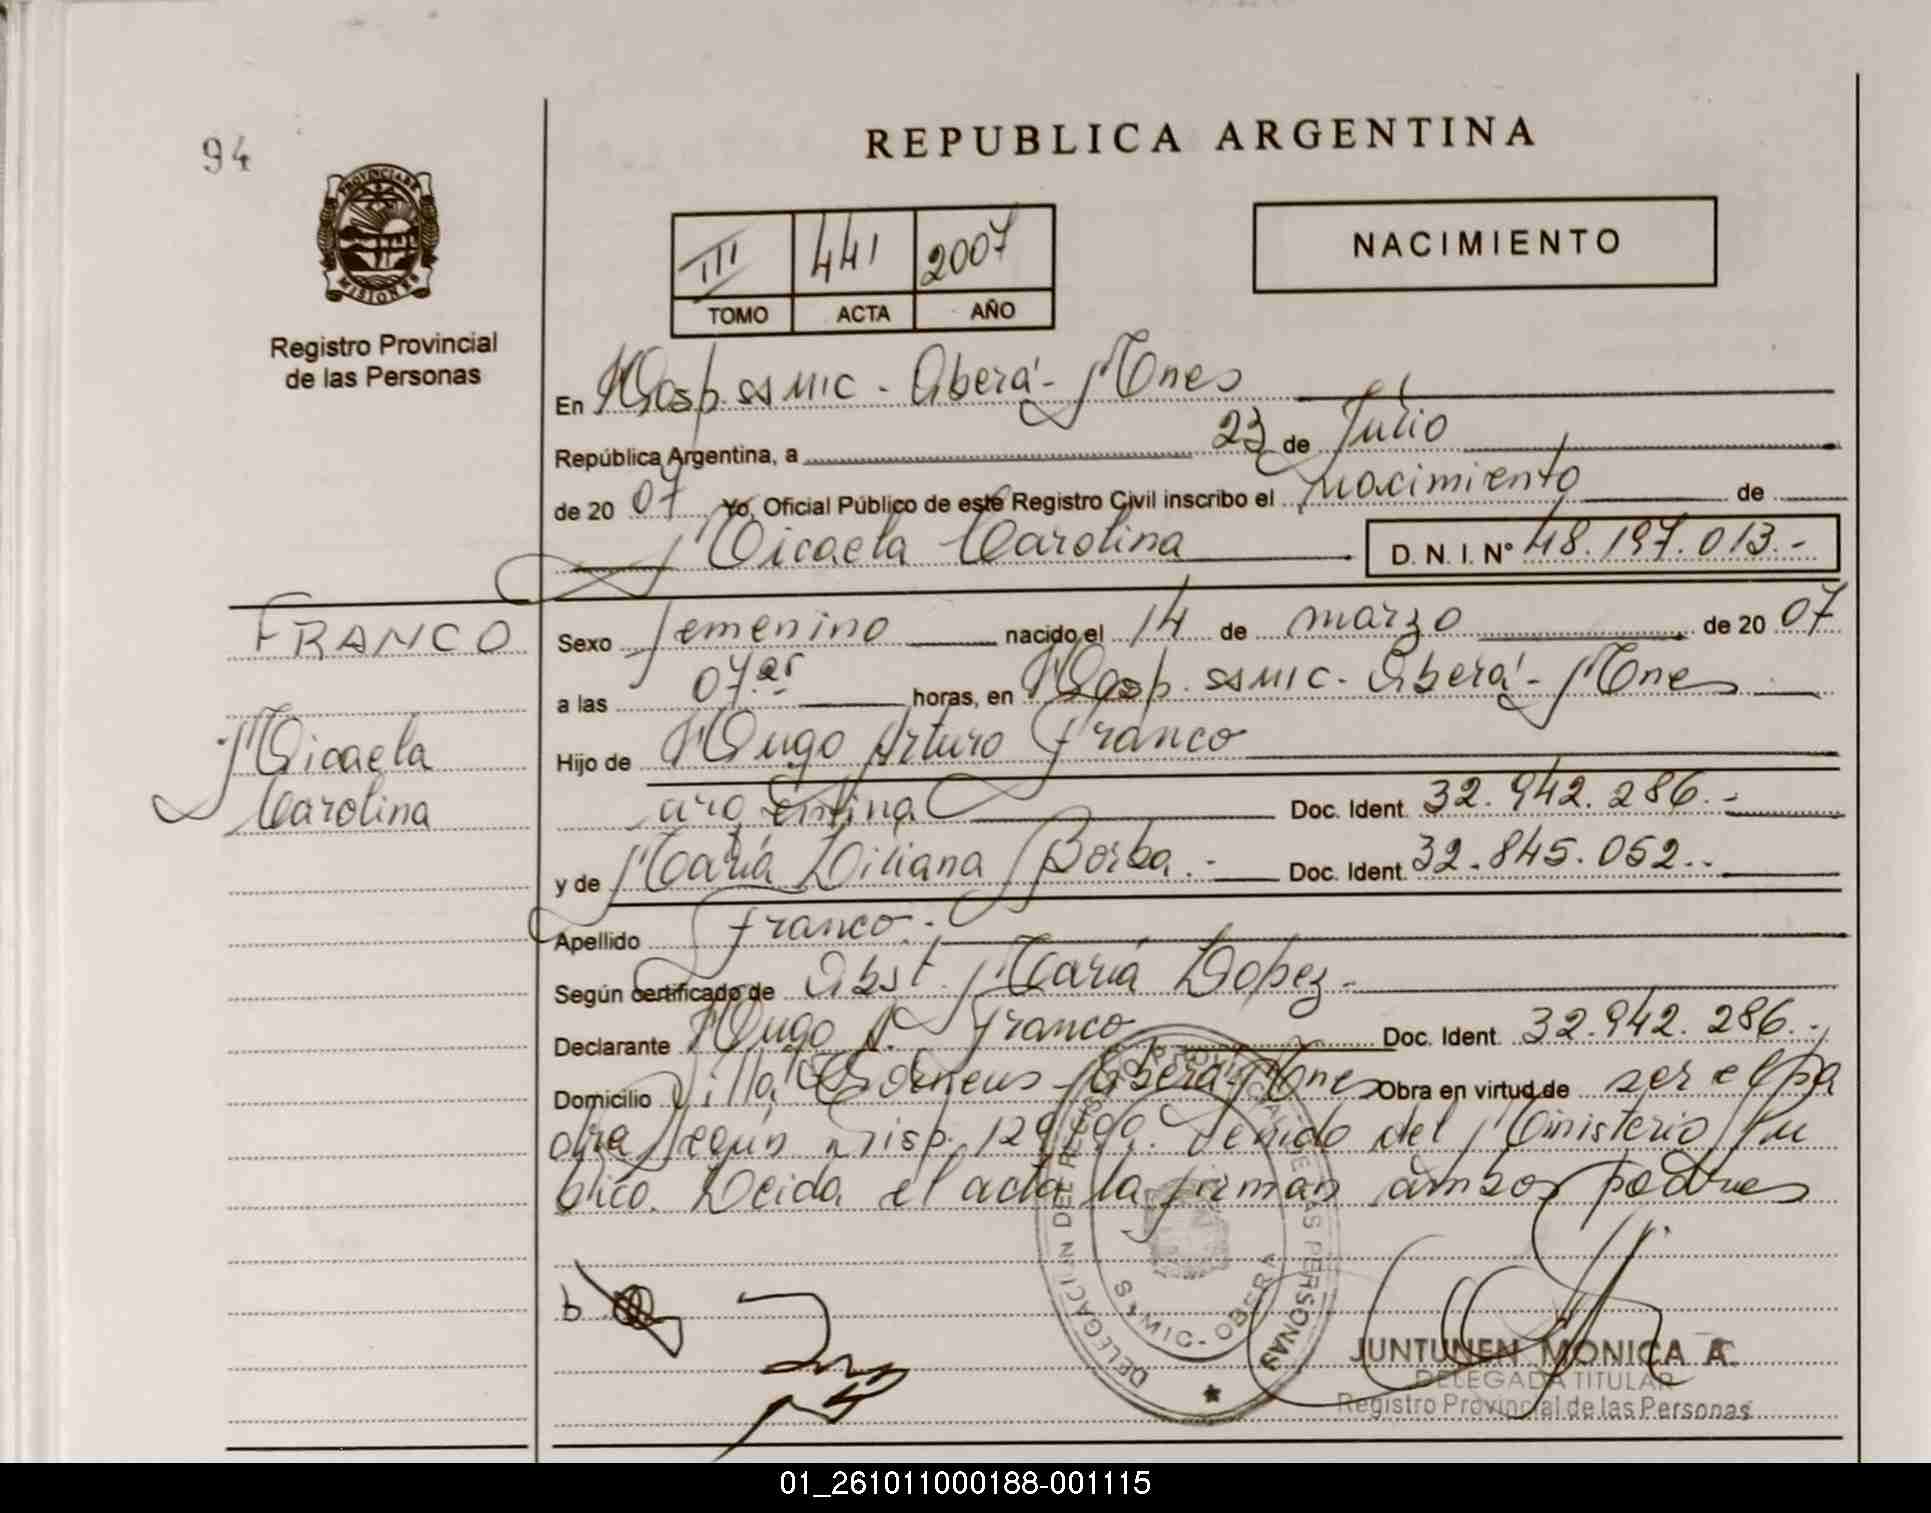 94
REPUBLICA ARGENTINA
PROVINCIA DE
MISIONES
Registro Provincial
de las Personas
III 441 2007
TOMO ACTA AÑO
NACIMIENTO
En Hosp. SSMIC - Oberá - Mnes
República Argentina, a 23 de Julio
de 20 07 Yo, Oficial Público de este Registro Civil inscribo el nacimiento de
Micaela Carolina D. N. I. Nº 48.197.013.-
FRANCO
Micaela
Carolina
Sexo femenino nacido el 14 de marzo de 20 07
a las 07 horas, en Hosp. SSMIC - Oberá - Mnes
Hijo de Hugo Arturo Franco
argentina Doc. Ident. 32.942.286.-
y de María Liliana Borba.- Doc. Ident. 32.845.052.-
Apellido Franco.-
Según certificado de Obst. María Lopez-
Declarante Hugo A. Franco Doc. Ident. 32.942.286.-
Domicilio Villa Oberá-Mnes Obra en virtud de ser el pa
dre Según Disp. del Ministerio Pu
blico. Leida el acta la firman ambos padres
b
DELEGACION DEL REGISTRO PROVINCIAL DE LAS PERSONAS
SAMIC - OBERA
JUNTUNEN MONICA A.
DELEGADA TITULAR
Registro Provincial de las Personas
01_261011000188-001115